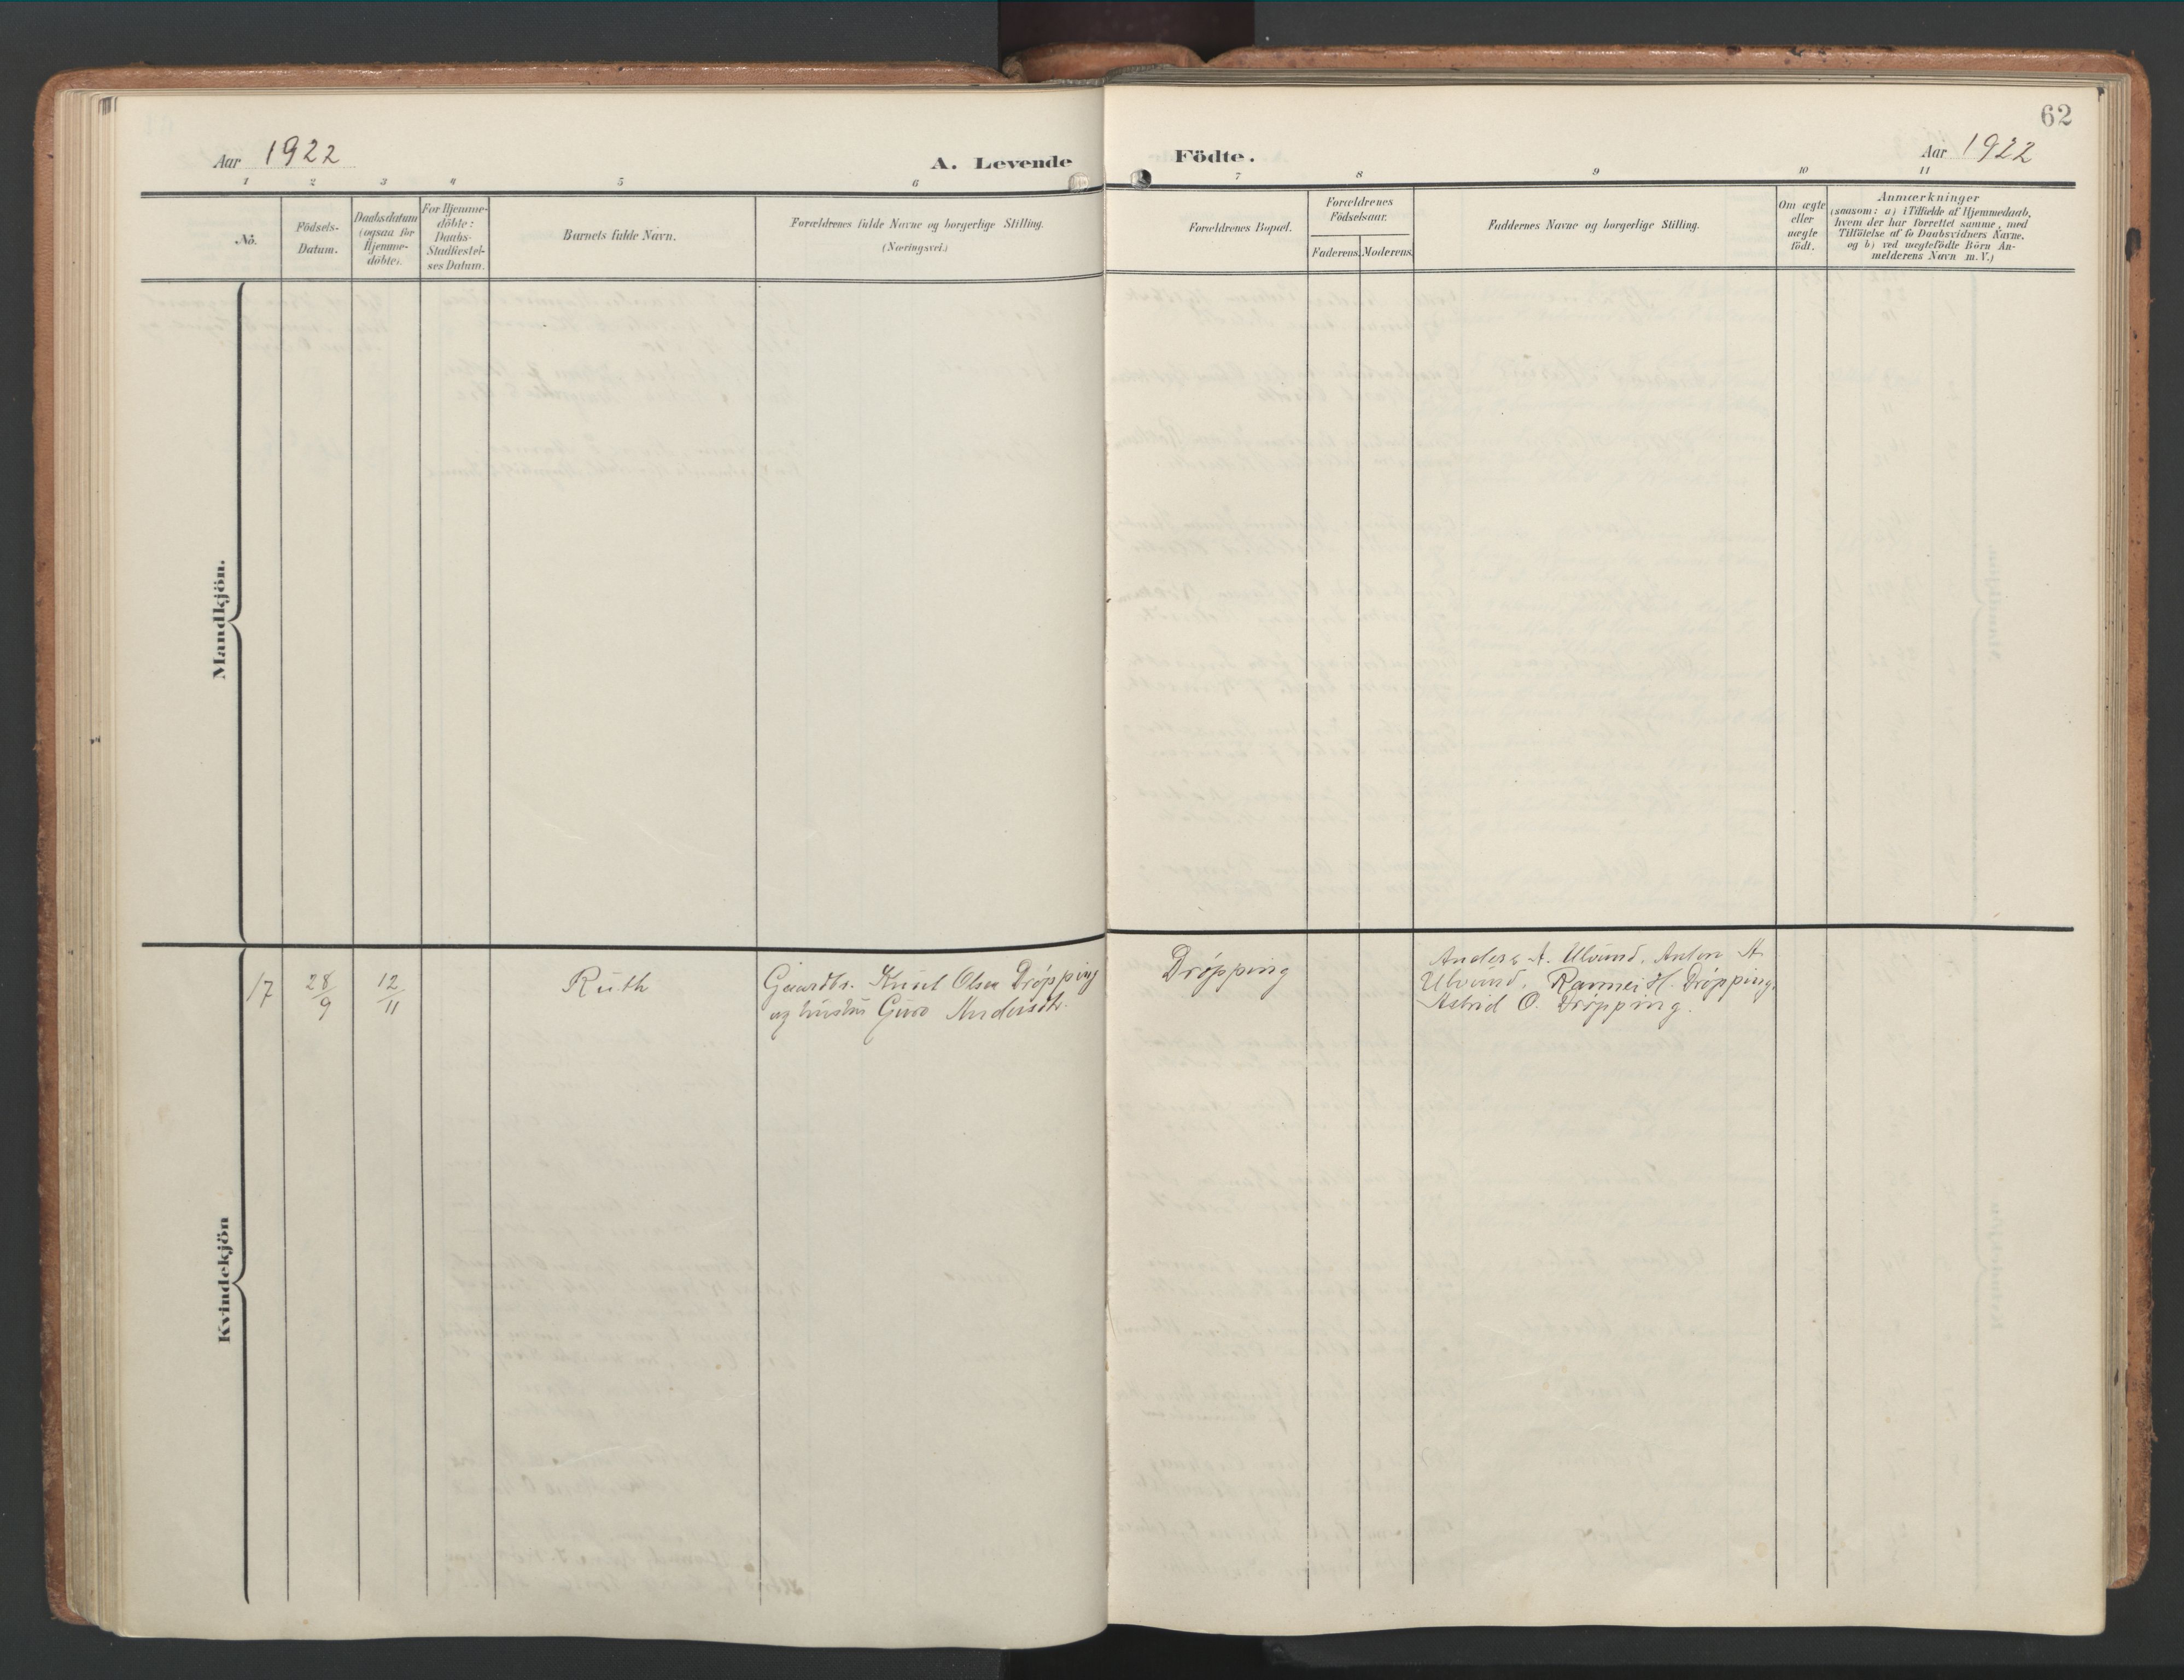 62
Aar 1922
A. Levende Födte.
Aar 1922
1 2 3 4 5 6 7 8 9 10 11
No.
Födsels-
Datum.
Daabsdatum
(ogsaa for
Hjemme-
döbte).
For Hjemme-
döbte:
Daabs-
Stadfæstel-
ses Datum.
Barnets fulde Navn.
Forældrenes fulde Navne og borgerlige Stilling.
(Næringsvei.)
Forældrenes Bopæl.
Forældrenes
Födselsaar.
Faderens. Moderens.
Faddernes Navne og borgerlige Stilling.
Om ægte
eller
uægte
födt.
Anmærkninger
(saasom: a) i Tilfælde af Hjemmedaab,
hvem der har forrettet samme, med
Tilföielse af to Daabsvidners Navne.
og b) ved uægtefödte Börn An-
melderens Navn m.V.)
Mandkjön.
Kvindekjön
17
28/9
12/11
Ruth
Gaardbr. Knut Olsen Drøpping
og hustru Guro Andersdtr.
Drøpping
Anders A. Ulvund, Anton A.
Ulvund, Rannei H. Drøpping,
Astrid O. Drøpping.